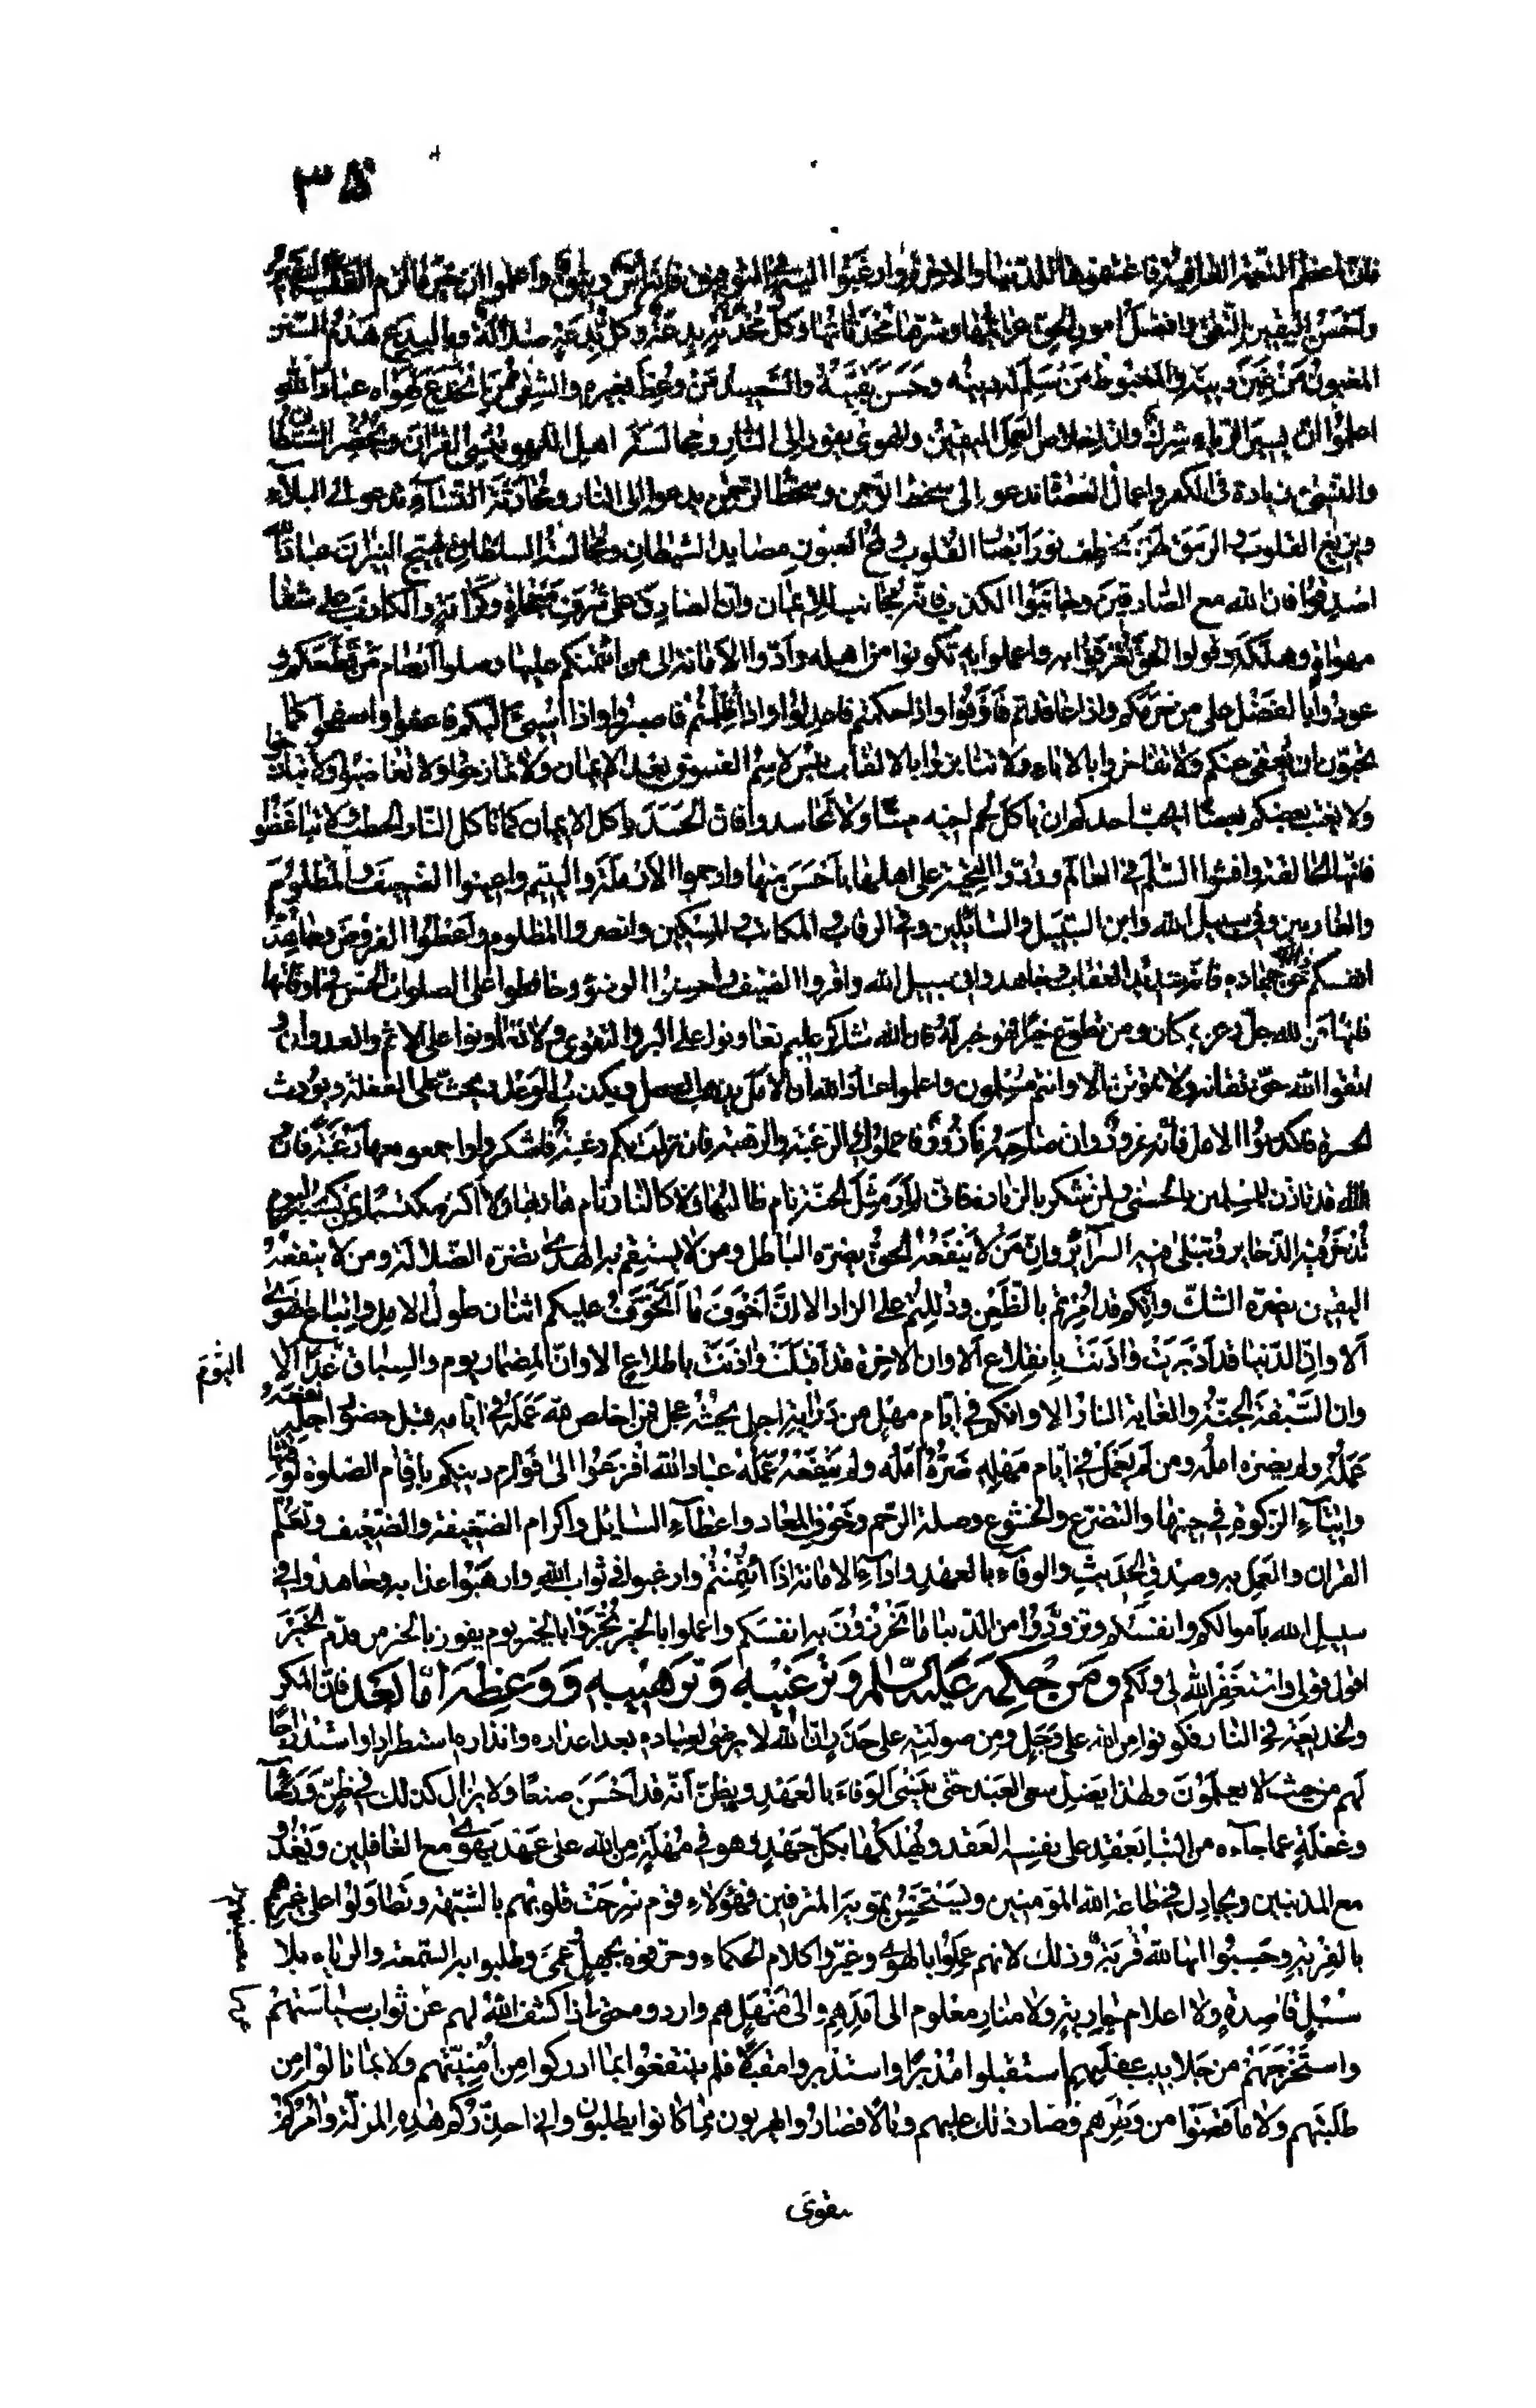 ٣٥
فان اعظم النعمة العافية فاغتنموها للدنيا والاخرة وارغبوا اليه في التوفيق فانه اس وثيق واعلموا ان خير ما لزم القلب اليقين
واحسن اليقين التقى وافضل امور الحق عزائمها وشرها محدثاتها وكل محدثة بدعة وكل بدعة ضلالة وبالبدع هدم السنن
المغبون من غبن دينه والمغبوط من سلم له دينه وحسن يقينه والسعيد من وعظ بغيره والشقي من انخدع لهواه عباد الله
اعلموا ان يسير الرياء شرك وان اخلاص العمل اليقين والهوى يقود الى النار ومجالسة اهل اللهو ينسي القران ويحضر الشيطان
والنسيء زيادة في الكفر واعمال العصاة تدعو الى سخط الرحمن وسخط الرحمن يدعو الى النار ومحادثة النساء تدعو الى البلاء
ويزيغ القلوب والرمق لهن يخطف نور ابصار القلوب ولمح العيون مصايد الشيطان ومجالسة السلطان يهيج النيران عباد الله
اصدقوا فان الله مع الصادقين وجانبوا الكذب فانه مجانب للايمان وان الصادق على شرف منجاة وكرامة والكاذب على شفا
مهواة وهلكة وقولوا الحق تعرفوا به واعملوا به تكونوا من اهله وادوا الامانة الى من ائتمنكم عليها وصلوا ارحام من قطعكم و
عودوا بالفضل على من حرمكم واذا عاقدتم فاوفوا واذا حكمتم فاعدلوا واذا ظلمتم فاصبروا واذا اسيء اليكم فاعفوا واصفحوا كما
تحبون ان يعفى عنكم ولا تفاخروا بالاباء ولا تنابزوا بالالقاب بئس الاسم الفسوق بعد الايمان ولا تمازحوا ولا تغاضبوا ولا تباذخوا
ولا يغتب بعضكم بعضا ايحب احدكم ان ياكل لحم اخيه ميتا ولا تحاسدوا فان الحسد ياكل الايمان كما تاكل النار الحطب ولا تباغضوا
فانها الحالقة وافشوا السلام في العالم وردوا التحية على اهلها باحسن منها وارحموا الارملة واليتيم واعينوا الضعيف والمظلوم
والغارمين وفي سبيل الله وابن السبيل والسائلين وفي الرقاب والمكاتب والمسكين وانصروا المظلوم واعطوا الفروض وجاهدوا
انفسكم في الله حق جهاده فانه شديد العقاب وجاهدوا في سبيل الله واقروا الضيف واحسنوا الوضوء وحافظوا على الصلوات الخمس في اوقاتها
فانها من الله جل وعز بمكان ومن تطوع خيرا فهو خير له فان الله شاكر عليم تعاونوا على البر والتقوى ولا تعاونوا على الاثم والعدوان و
اتقوا الله حق تقاته ولا تموتن الا وانتم مسلمون واعلموا عباد الله ان الامل يذهب العقل ويكذب الوعد ويحث على الغفلة ويورث
الحسرة فاكذبوا الامل فانه غرور وان صاحبه مأزور فاعملوا في الرغبة والرهبة فان نزلت بكم رغبة فاشكروا واجمعوا معها رغبة فان
الله قد تاذن للمسلمين بالحسنى ولمن شكر بالزيادة فاني لم ار مثل الجنة نام طالبها ولا كالنار نام هاربها ولا اكثر مكتسبا من كسبه اليوم
تذخر فيه الذخاير وتبلى فيه السرآئر وان من لا ينفعه الحق يضره الباطل ومن لا يستقيم به الهدى تضره الضلالة ومن لا ينفعه
اليقين يضره الشك وانكم قد امرتم بالظعن ودللتم على الزاد الا ان اخوف ما اتخوف عليكم اثنان طول الامل واتباع الهوى
الا وان الدنيا قد ادبرت واذنت بانقلاع الا وان الاخرة قد اقبلت واذنت باطلاع الا وان المضمار يوم والسباق غدا الا
اليوم
وان السبقة الجنة والغاية النار الا وانكم في ايام مهل من ورائه اجل يحثه عجل فمن اخلص لله عمله في ايامه قبل حضور اجله نفعه
عمله ولم يضره امله ومن لم يعمل في ايام مهله ضره امله ولم ينفعه عمله عباد الله افزعوا الى قوام دينكم باقام الصلوة لوقتها
وايتآء الزكوة في حينها والتضرع والخشوع وصلة الرحم وخوف المعاد واعطآء السايل واكرام الضعيفة والضعيف وتعلم
القران والعمل به وصدق الحديث والوفآء بالعهد وادآء الامانة اذا ائتمنتم وارغبوا في ثواب الله وارهبوا عذابه وجاهدوا في
سبيل الله باموالكم وانفسكم وتزودوا من الدنيا ما تحرزون به انفسكم واعملوا بالخير تجزوا بالخير يوم يفوز بالخير من قدم الخير
اقول قولي واستغفر الله لي ولكم ومن حكمه عليه السلم وترغيبه وترهيبه ووعظه اما بعد فان المكر
والخديعة في النار فكونوا من الله على وجل ومن صولته على حذر ان الله لا يرضى لعباده بعد اعذاره وانذاره استطرادا واستدراجا
لهم من حيث لا يعلمون ولهذا يضل سعى العبد حتى ينسى الوفاء بالعهد ويظن انه قد احسن صنعا ولا يزال كذلك في ظن ورجآء
وغفلة عما جآءه من النبا يعقد على نفسه العقد ويهلكها بكل جهد وهو في مهلة من الله على عهد يهوى مع الغافلين ويغدو
مع المذنبين ويجادل في طاعة الله المؤمنين ويستحسن تمويه المترفين فهؤلاء قوم شرحت قلوبهم بالشبهة وتطاولوا على غيرهم
بالفرية وحسبوا انها لله قربة وذلك لانهم عملوا بالهوى وغيروا كلام الحكماء وحرفوه بجهل وعمى وطلبوا به السمعة والرياء بلا
سبل قاصدة ولا اعلام جارية ولا منار معلوم الى امدهم والى منهل هم واردوه حتى اذا كشف الله لهم عن ثواب سياستهم
واستخرجهم من جلابيب غفلتهم استقبلوا مدبرا واستدبروا مقبلا فلم ينتفعوا بما ادركوا من امنيتهم ولا بما نالوا من
طلبتهم ولا ما قضوا من وطرهم فصار ذلك عليهم وبالا فصاروا يهربون مما كانوا يطلبون واني احذركم هذه المزلة وامركم
بتقوى